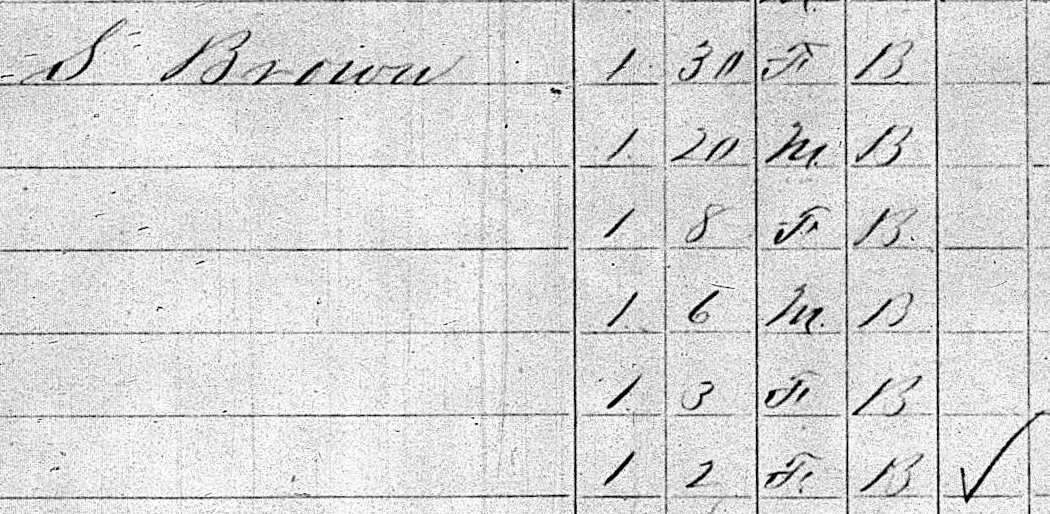 S Brown 1 30 F B
1 20 M. B
1 8 F B
1 6 M. B
1 3 F B
1 2 F. B ✓